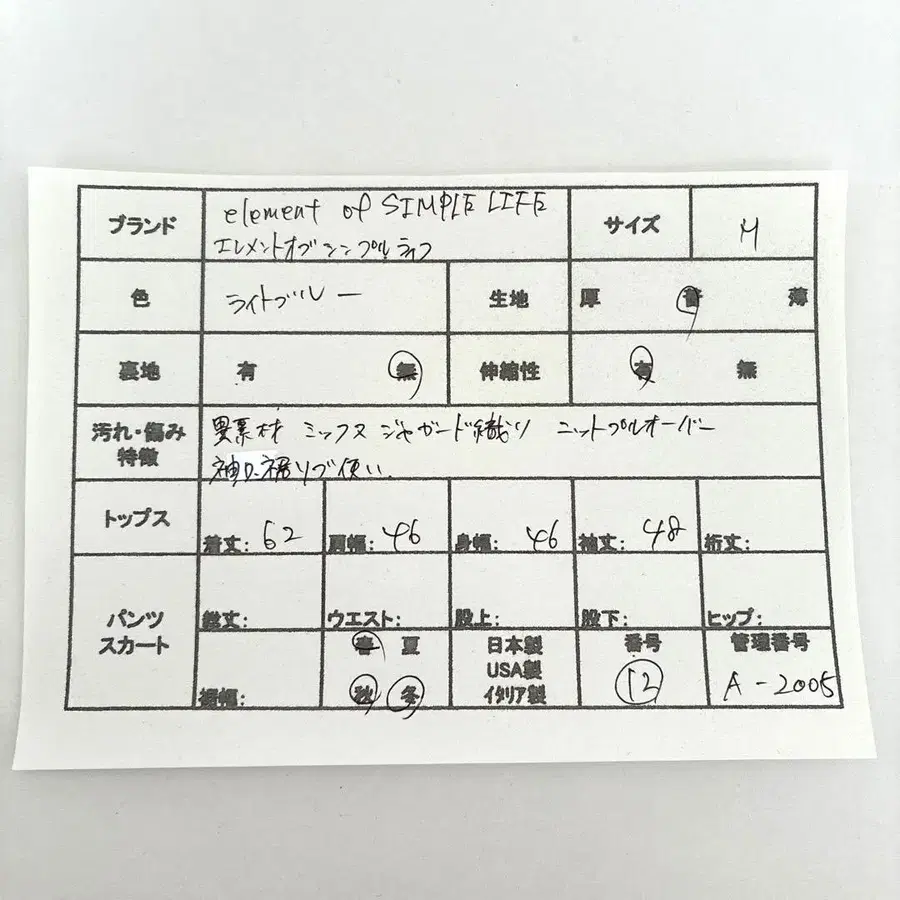 ブランド element of SIMPLE LIFE サイズ M
エレメントオブシンプルライフ
色 ライトブルー 生地 厚 普 薄
裏地 有 無 伸縮性 有 無
汚れ・傷み 異素材 ミックス ジャガード織り ニットプルオーバー
特徴 袖口、裾リブ使い
トップス 着丈: 62 肩幅: 46 身幅: 46 袖丈: 48 裄丈:
パンツ 総丈: ウエスト: 股上: 股下: ヒップ:
スカート 春 夏 日本製 番号 管理番号
USA製
裾幅: 秋 冬 イタリア製 12 A-2005